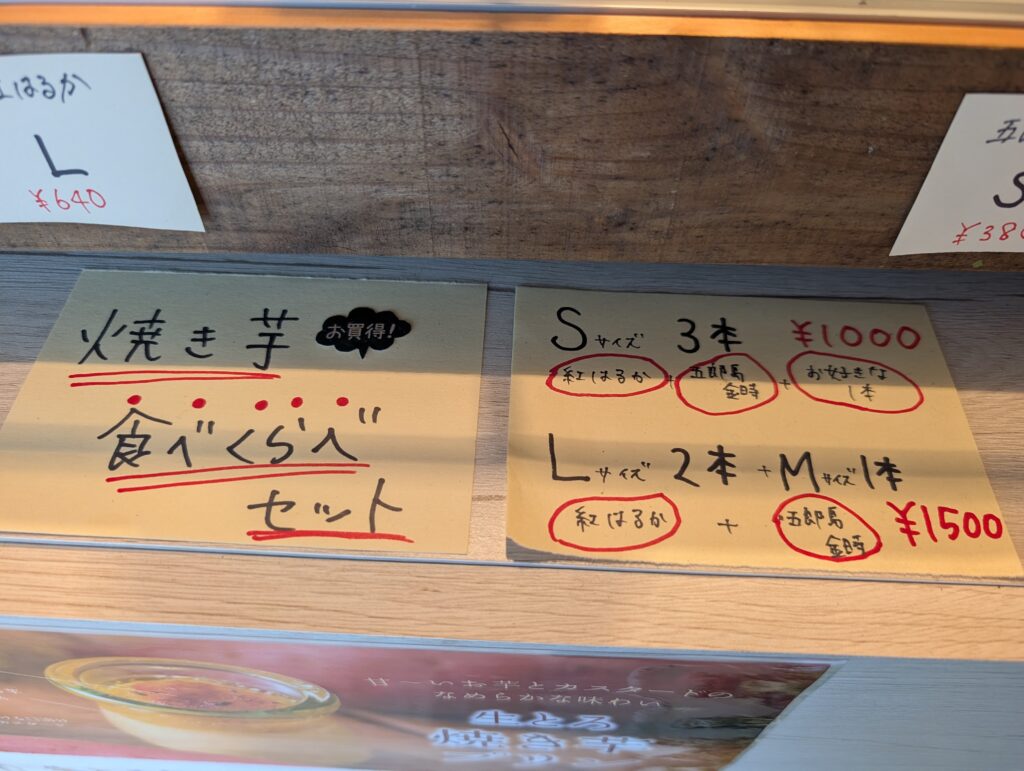 はるか
L
¥640
S
焼き芋 お買得!
食べくらべ
セット
Sサイズ 3本 ¥1000
紅はるか + 五郎島金時 + お好きな1本
Lサイズ 2本 + Mサイズ1本
紅はるか + 五郎島金時 ¥1500
甘〜いお芋とカスタードの
なめらかな味わい
生とろ
焼き芋
プリン